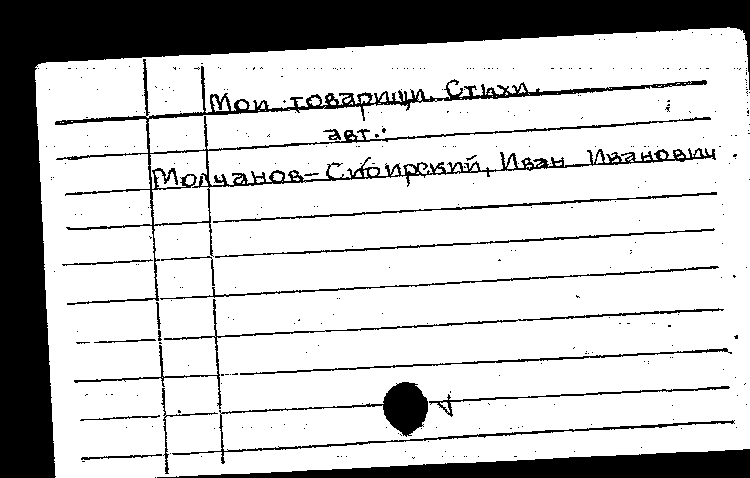 Мои товарищи. Стихи.
авт.:
Молчанов-Сибирский, Иван Иванович